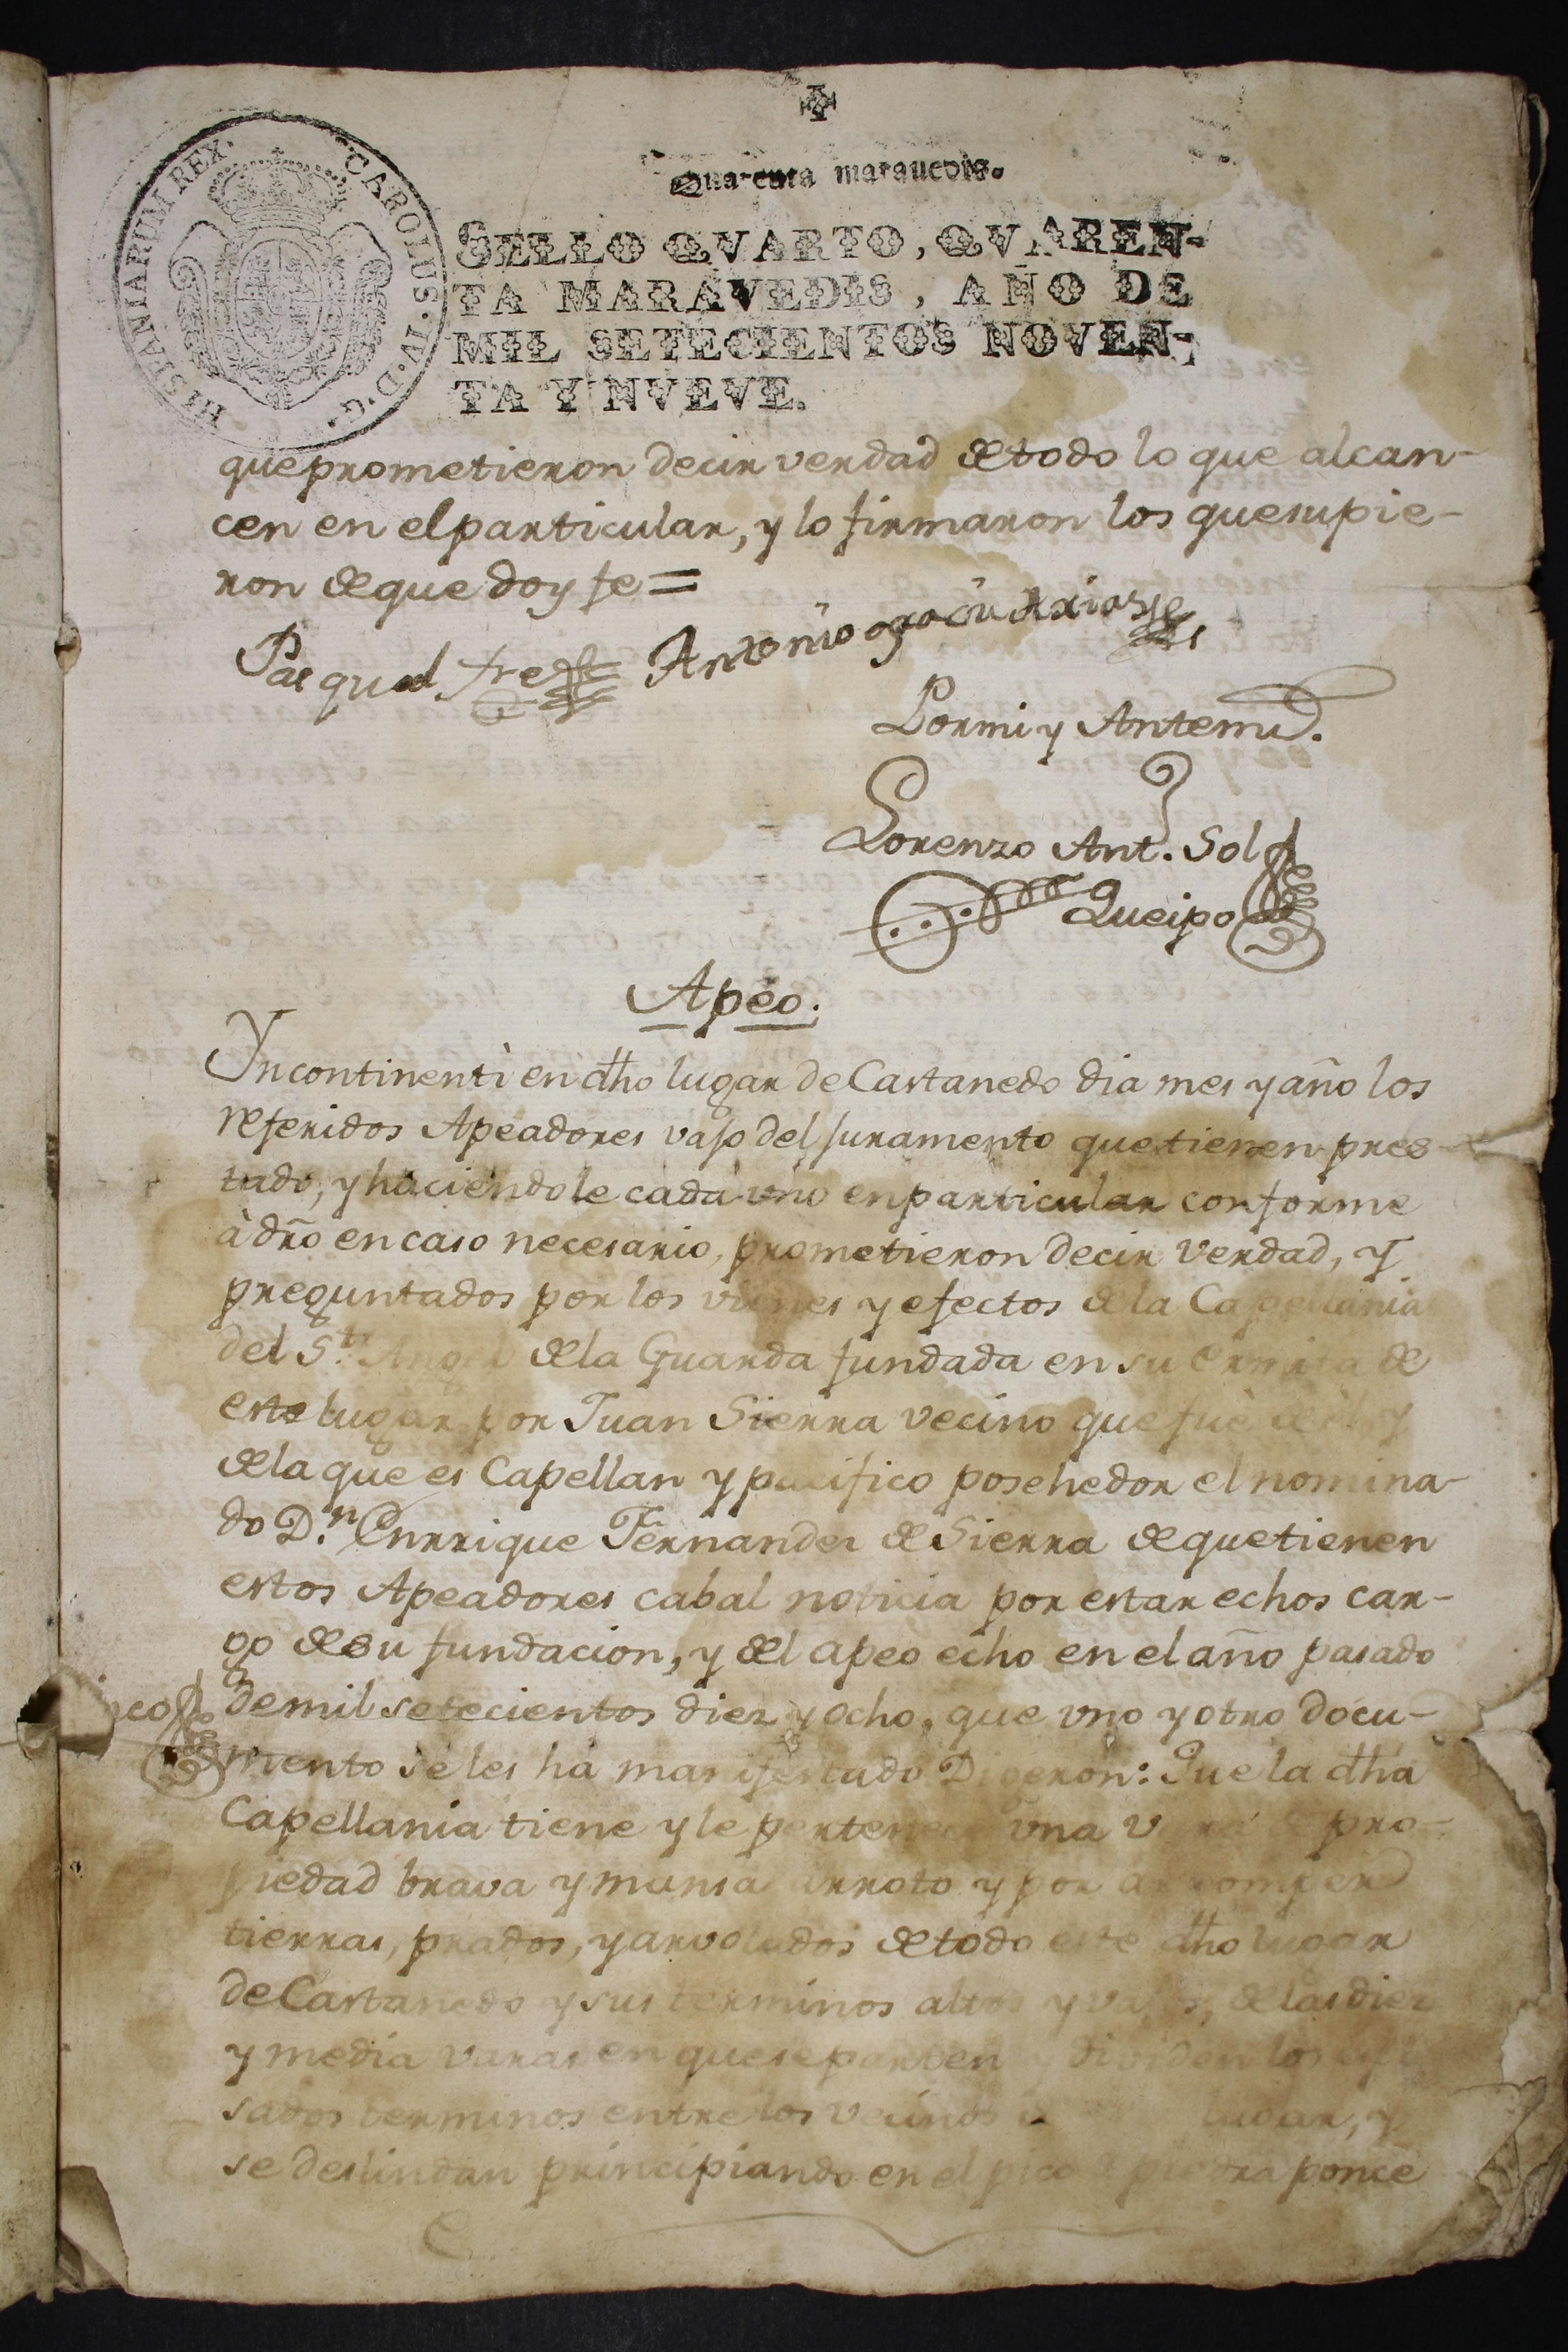 Quarenta marauedis.
HISPANIARUM REX. CAROLUS. IV. D. G.
SELLO QVARTO, QVAREN-
TA MARAVEDIS, AÑO DE
MIL SETECIENTOS NOVEN-
TA Y NVEVE.
que prometieron decir verdad de todo lo que alcan-
cen en el particular, y lo firmaron los que supie-
ron de que doy fe =
Pasqual Antonio
Por mi y Antemi
Lorenzo Ant. Sol
Queipo
Apeo.
Yncontinenti en dho lugar de Castanedo dia mes y año los
referidos Apeadores vajo del juramento que tienen pres-
tado, y haciendole cada uno en particular conforme
à dro en caso necesario, prometieron decir verdad, y
preguntados por los vienes y efectos de la Capellania
del Sto. Angel de la Guarda fundada en su ermita de
este lugar por Juan Sierra vecino que fue de el y
de la que es Capellan y pacifico posehedor el nomina-
do D.n Enrrique Fernandez de Sierra de que tienen
estos Apeadores cabal noticia por estar echos car-
go de su fundacion, y del apeo echo en el año pasado
de mil setecientos diez y ocho, que uno y otro docu-
mento se les ha manifestado Digeron: Que la dha
Capellania tiene y le pertenece una pro-
piedad brava y mansa arroto y por arromper
tierras, prados, y arvolados de todo este dho lugar
de Castanedo y sus terminos altos y vajos, de las diez
y media varas en que se parten y dividen los
sados terminos entre los vecinos lugar, y
se deslindan principiando en el pico piedra ponce